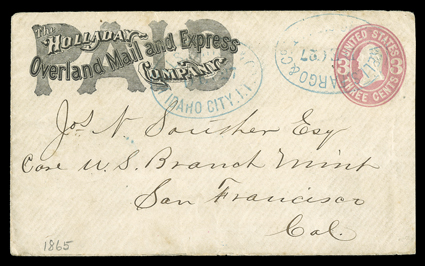 The
HOLLADAY
Overland Mail and Express
COMPANY.
PAID
IDAHO CITY, I.T.
WELLS FARGO & CO
27
UNITED STATES
3 3
THREE CENTS
Jos N Souther Esq
Care U.S. Branch Mint
San Francisco
Cal.
1865